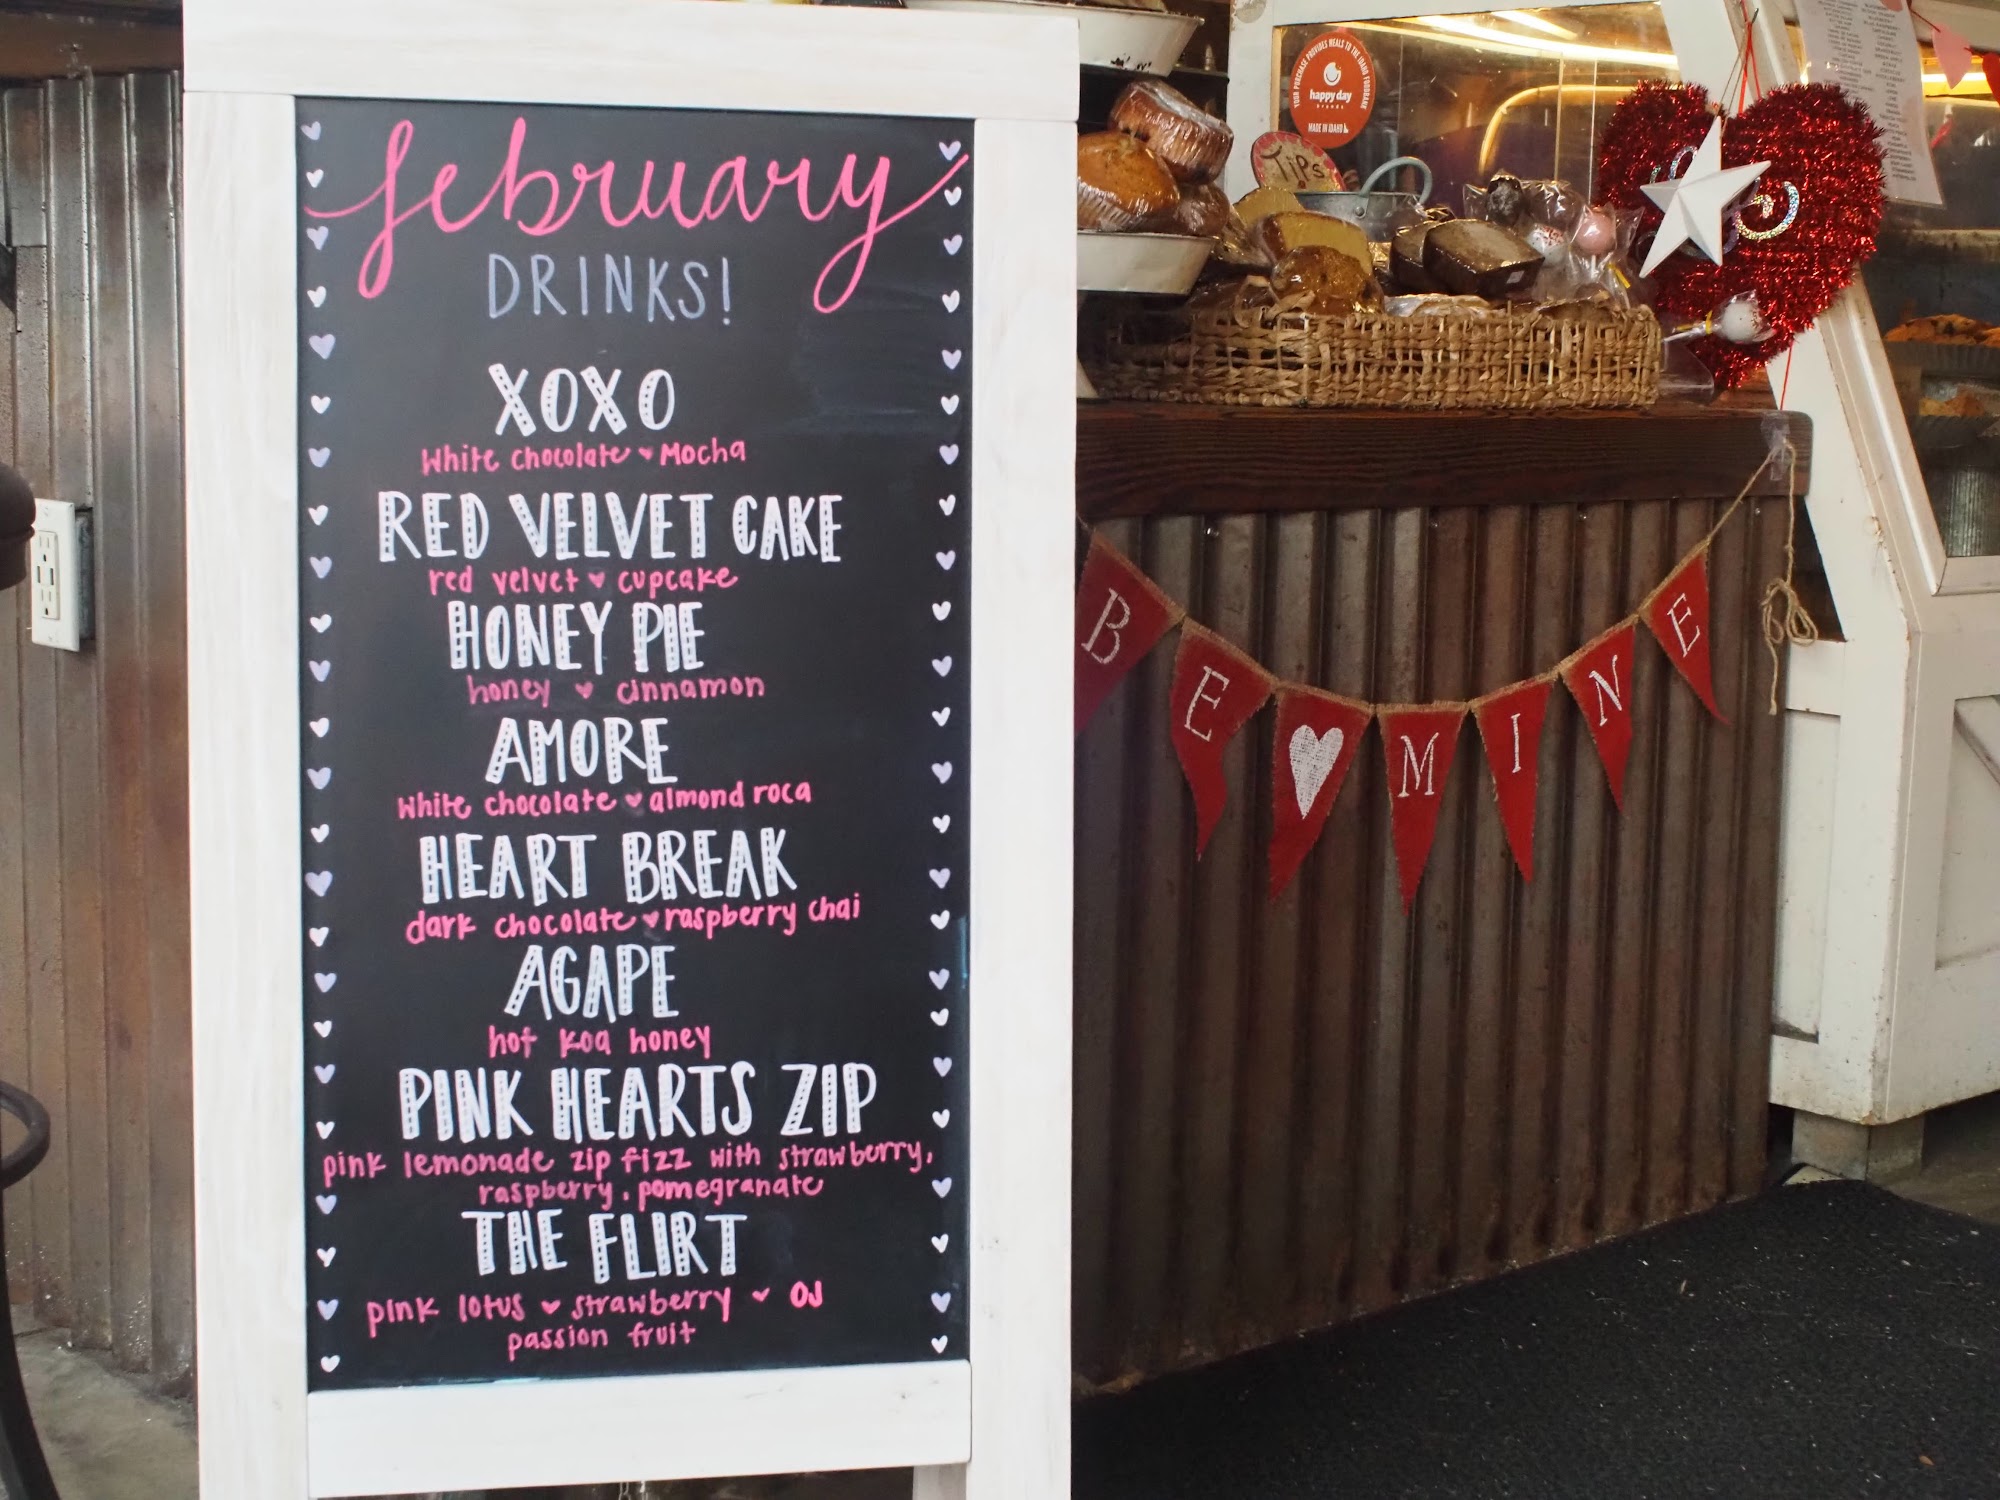 february
DRINKS!
XOXO
White chocolate ♥ Mocha
RED VELVET CAKE
red velvet ♥ cupcake
HONEY PIE
honey ♥ cinnamon
AMORE
White chocolate ♥ almond roca
HEART BREAK
dark chocolate ♥ raspberry chai
AGAPE
hot koa honey
PINK HEARTS ZIP
pink lemonade zip fizz with strawberry,
raspberry, pomegranate
THE FLIRT
pink lotus ♥ strawberry ♥ OJ
passion fruit
YOUR PURCHASE PROVIDES MEALS TO THE IDAHO FOODBANK
happy day
BRANDS
MADE IN IDAHO
TiPs
BE ♥ MINE